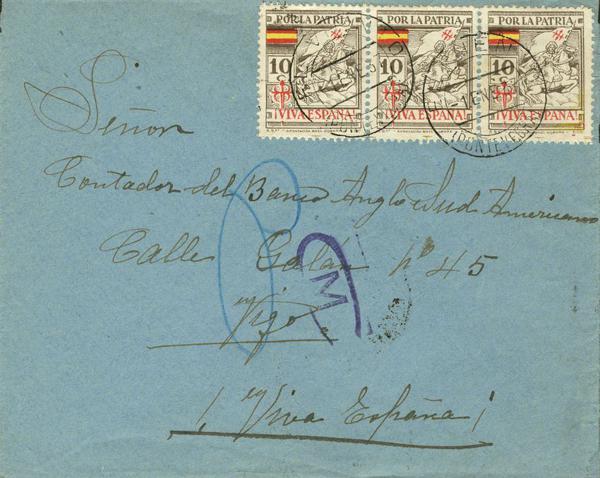 POR LA PATRIA POR LA PATRIA POR LA PATRIA
10 10 10
¡VIVA ESPAÑA! ¡VIVA ESPAÑA! ¡VIVA ESPAÑA!
(PONTEVEDRA)
Señor
Contador del Banco Anglo Sud Americano
Calle Galan nº 45
Vigo.
¡Viva España!